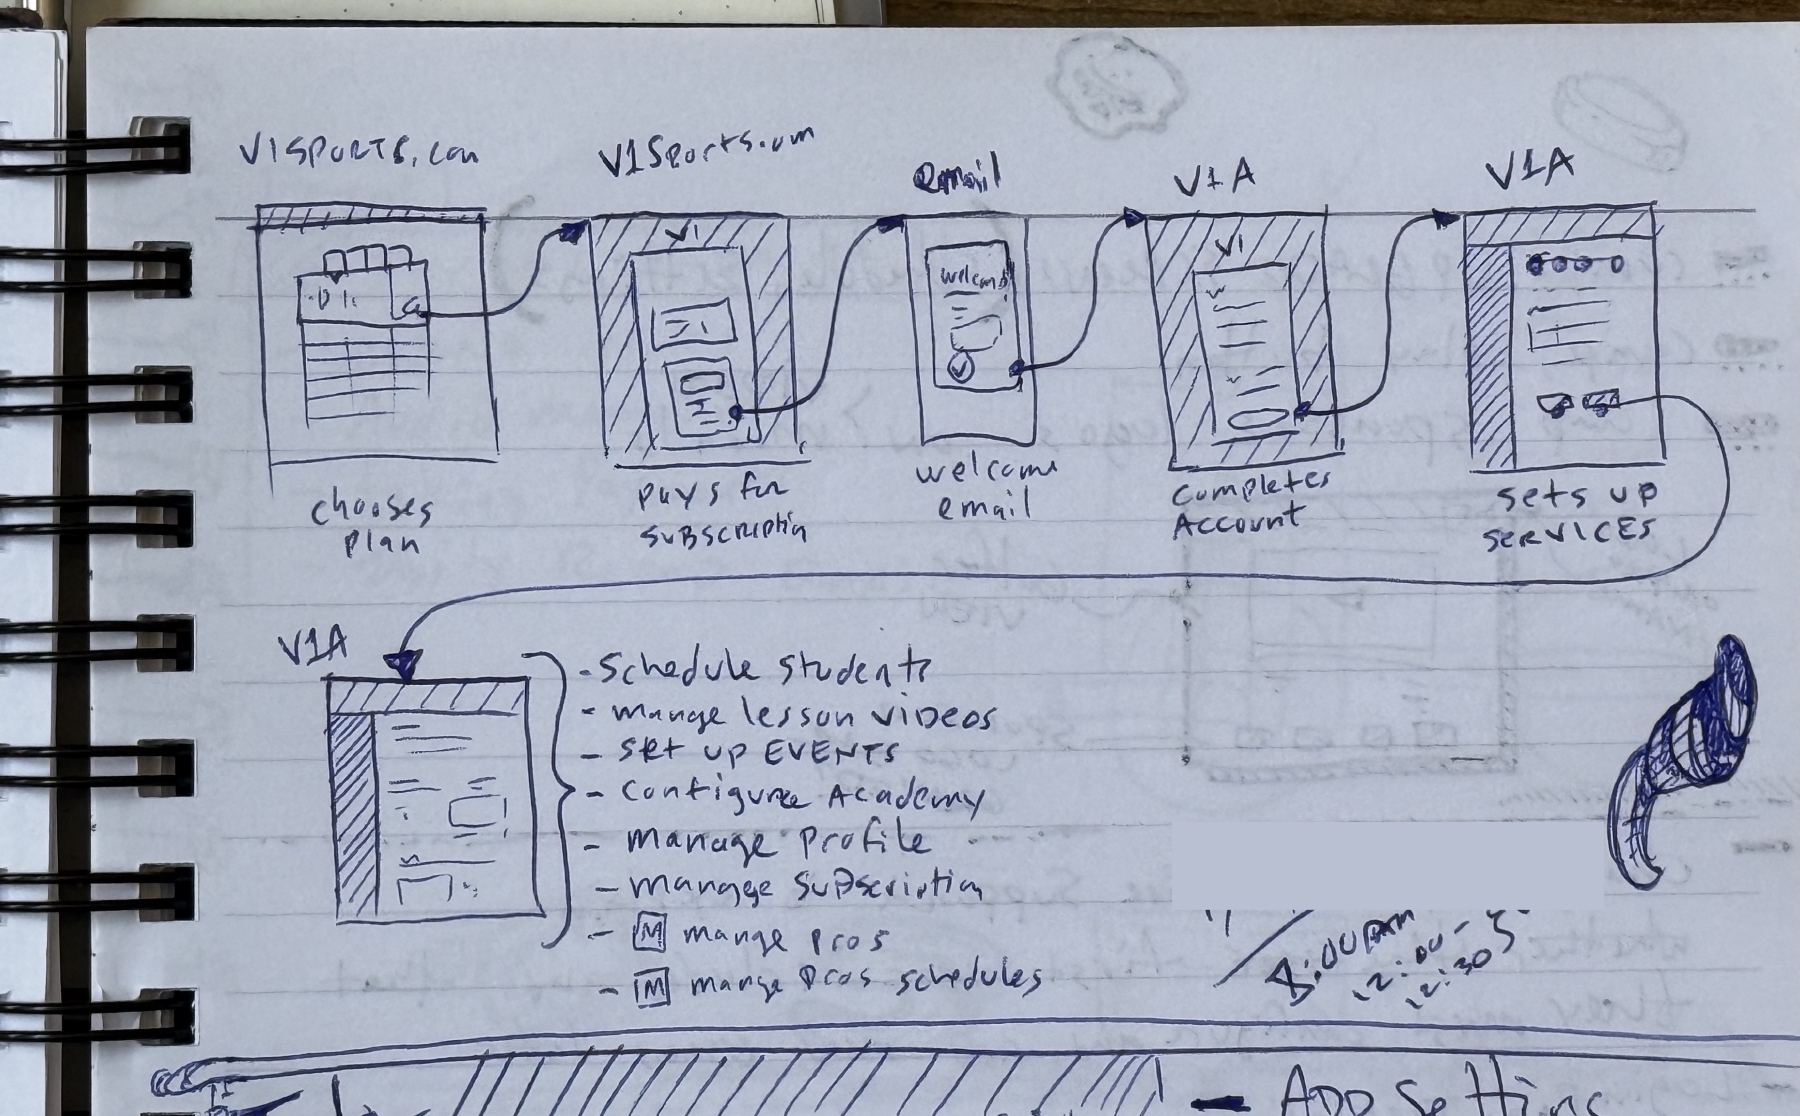 V1SPORTS.com
V1Sports.com
email
V1A
V1A
V1
welcome
V1
chooses
plan
pays for
subscription
welcome
email
completes
Account
sets up
services
V1A
- Schedule students
- mange lesson videos
- set up EVENTS
- Configure Academy
- manage profile
- manage subscription
- M mange pros
- M mange pros schedules
8:00AM
12:00-
12:30
- App Setting